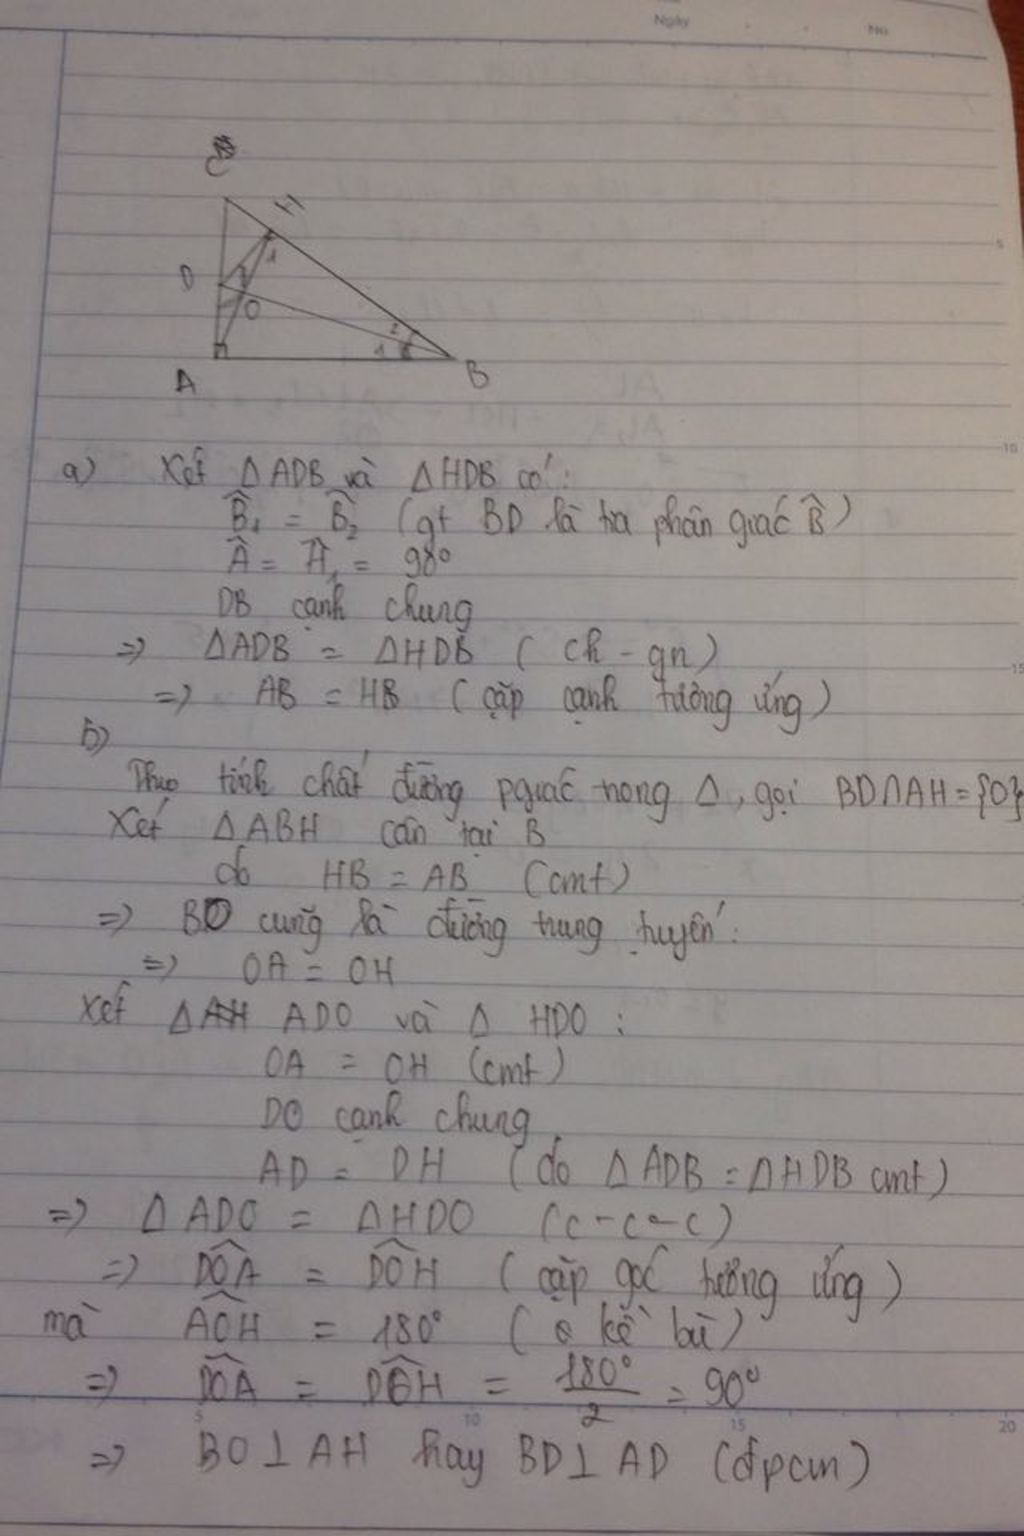 Ngày
No
C
H
D
1
O
2
1
A
B
5
10
15
a) Xét ΔADB và ΔHDB có:
B̂₁ = B̂₂ (gt BD là tia phân giác B̂)
Â = Ĥ₁ = 90°
DB cạnh chung
=> ΔADB = ΔHDB (ch - gn)
=> AB = HB (cặp cạnh tương ứng)
b)
Theo tính chất đường pgiác trong Δ, gọi BD∩AH = {O}
Xét ΔABH cân tại B
do HB = AB (cmt)
=> BO cũng là đường trung tuyến:
=> OA = OH
Xét Δ ADO và Δ HDO :
OA = OH (cmt)
DO cạnh chung
AD = DH (do ΔADB = ΔHDB cmt)
=> ΔADO = ΔHDO (c-c-c)
=> DÔA = DÔH (cặp góc tương ứng)
mà AÔH = 180° (2 kề bù)
=> DÔA = DÔH = 180°/2 = 90°
5 10 15 20
=> BO⊥AH hay BD⊥AD (đpcm)